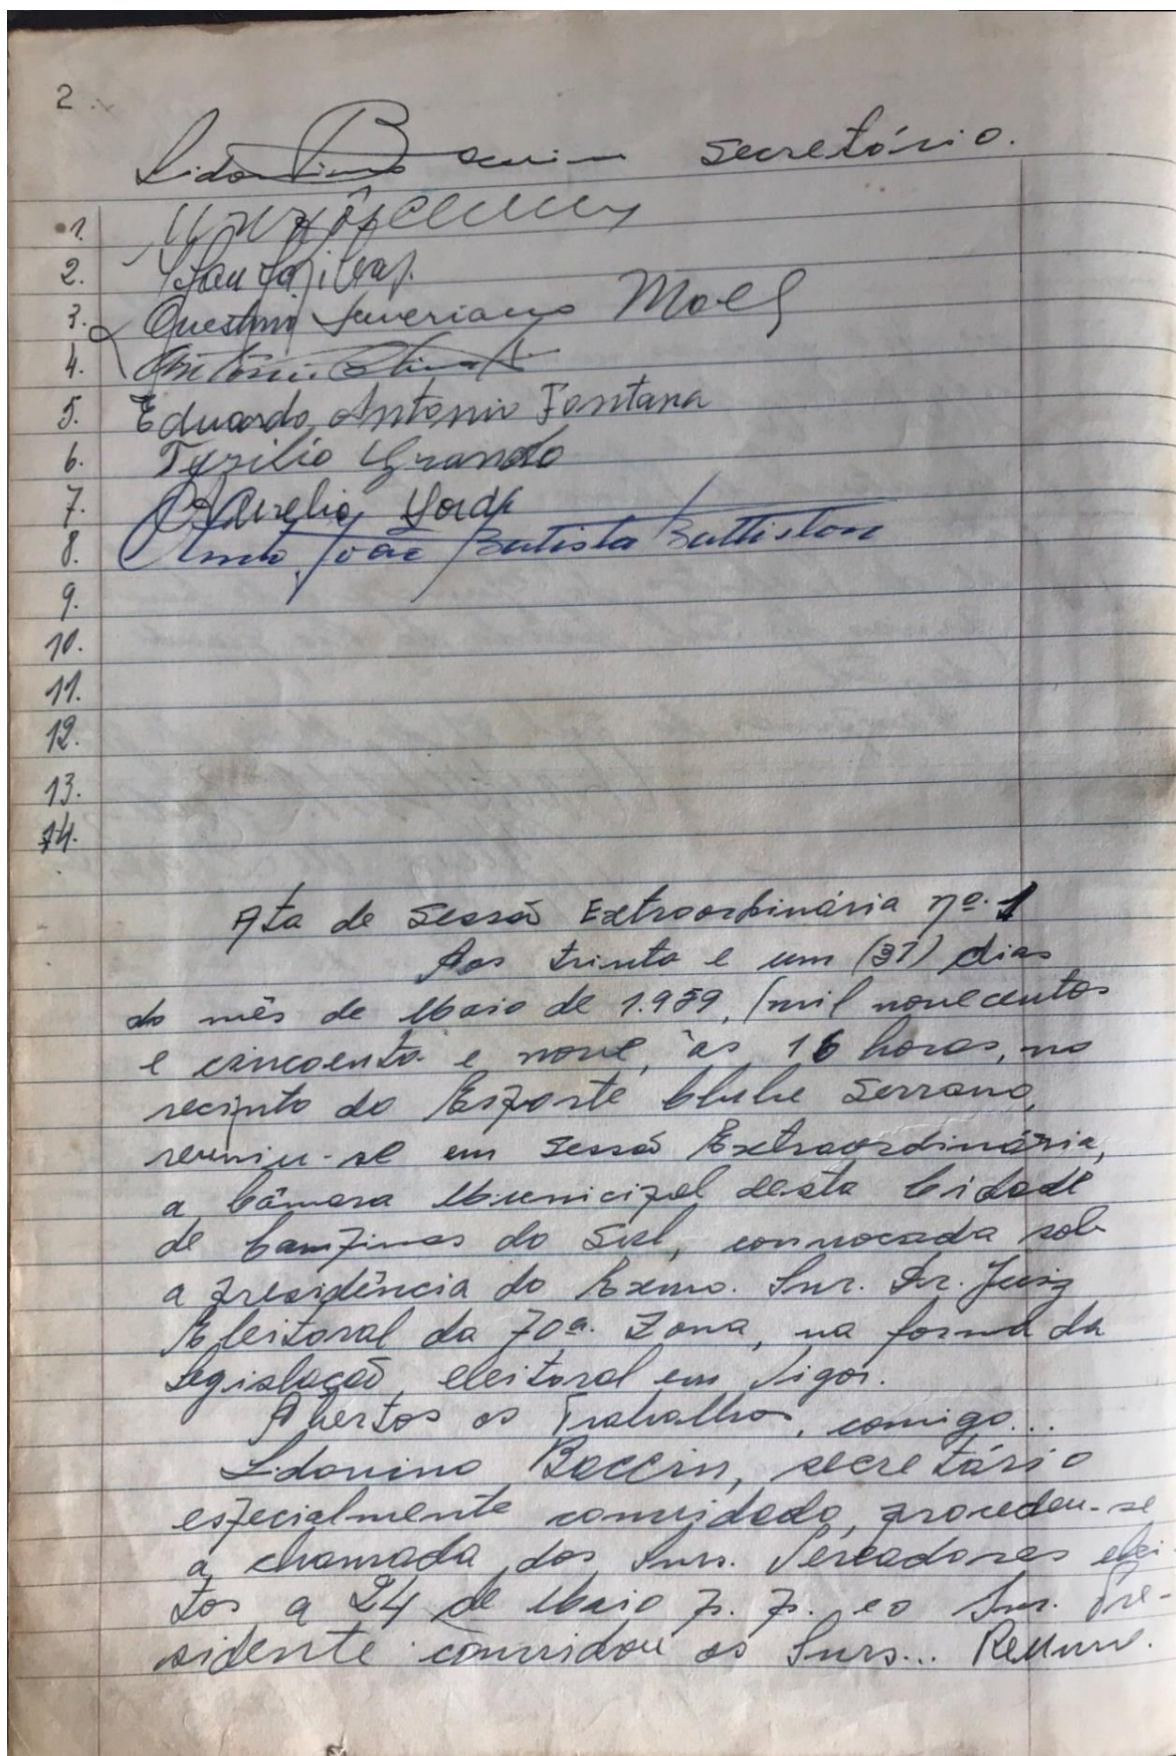 2
secretário.
1.
2.
3. Severiano
4. Antonio
5. Eduardo Antonio Fontana
6. Tyrilio Grando
7. Aurelio
8. João Batista Battiston
9.
10.
11.
12.
13.
14.
Ata de Sessão Extraordinária nº. 1
Aos trinta e um (31) dias
do mês de Maio de 1.959, (mil novecentos
e cincoenta e nove, às 16 horas, no
recinto do Esporte Clube Serrano,
reuniu-se em Sessão Extraordinária,
a Câmara Municipal desta Cidade
de Campinas do Sul, convocada sob
a presidência do Exmo. Snr. Dr. Juiz
Eleitoral da 70a. Zona, na forma da
legislação, eleitoral em vigor.
Abertos os Trabalhos, comigo...
Lidovino Baccin, secretário
especialmente convidado, procedeu-se
a chamada dos Snrs. Vereadores elei-
tos a 24 de Maio p. p. e o Snr. Pre-
sidente convidou os Snrs...